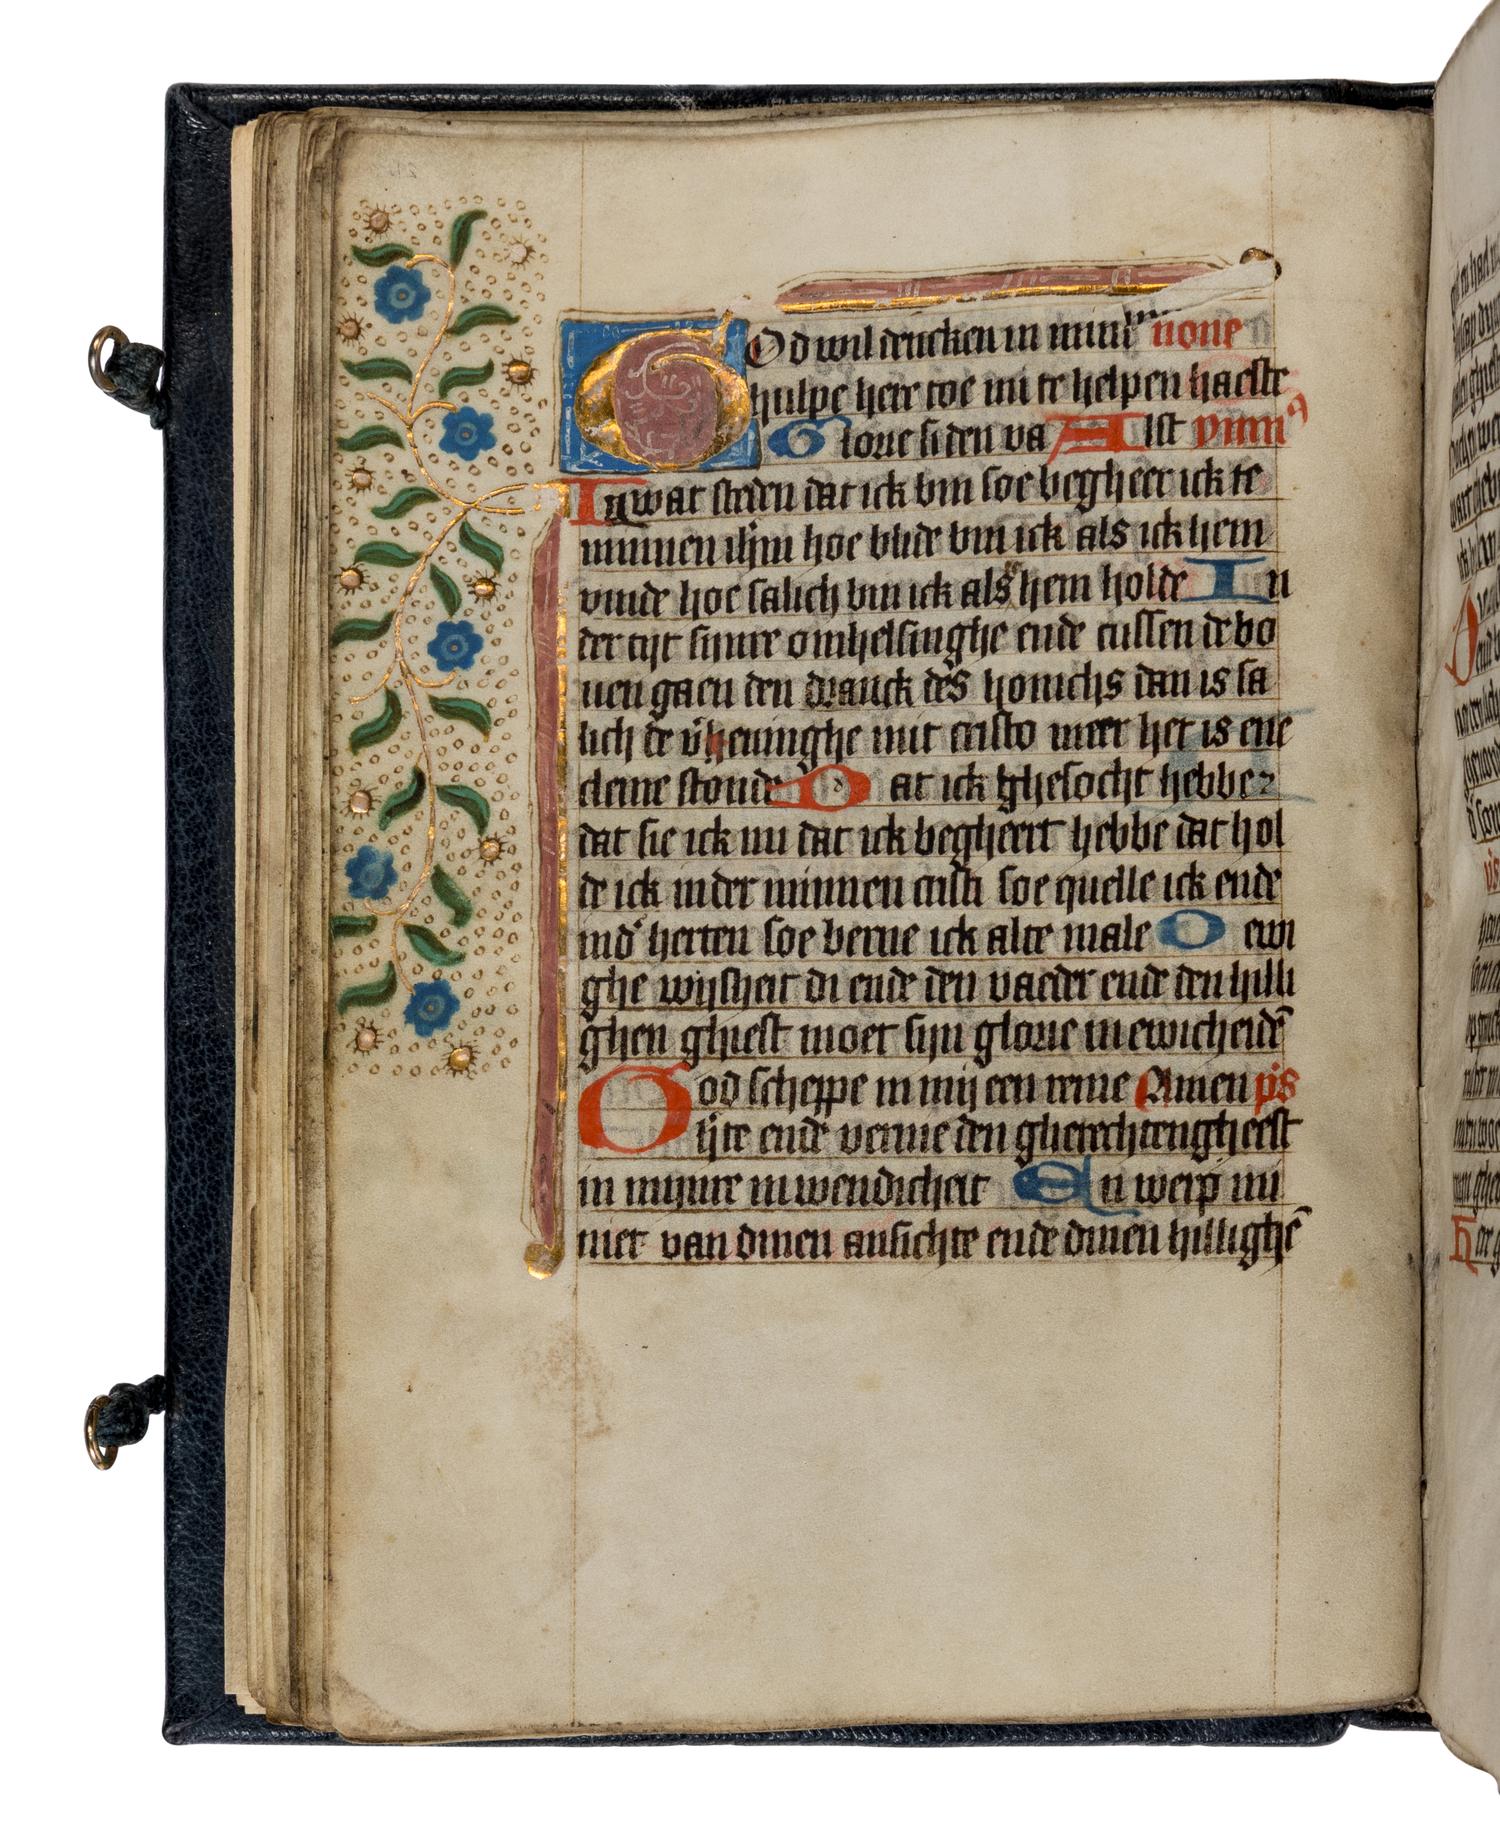 God wil dencken in minre none
hulpe here toe mi te helpen haeste
Glorie si den va Alst ymnus
In wat steden dat ick bin soe begheer ick te
minnen ihm hoe blide bin ick als ick hem
vinde hoe salich bin ick als ic hem holde In
der tijt sijnre omhelsinghe ende cussen de bo
uen gaen den dranck des honichs dan is sa
lich de v̄heninghe mit cristo meer het is ene
cleine stonde Dat ick ghesocht hebbe
dat sie ick nu dat ick begheert hebbe dat hol
de ick inder minnen cristi soe quelle ick ende
ind' herten soe berne ick alte male O ewi
ghe wijsheit di ende den vaeder ende den hilli
ghen ghiest moet sijn glorie in ewicheidē
God scheppe in mij een reine Amen ps
hte ende vernie den gherechten gheest
in mijnre inwendicheit En werp mi
niet van dinen ansichte ende dinen hillighē